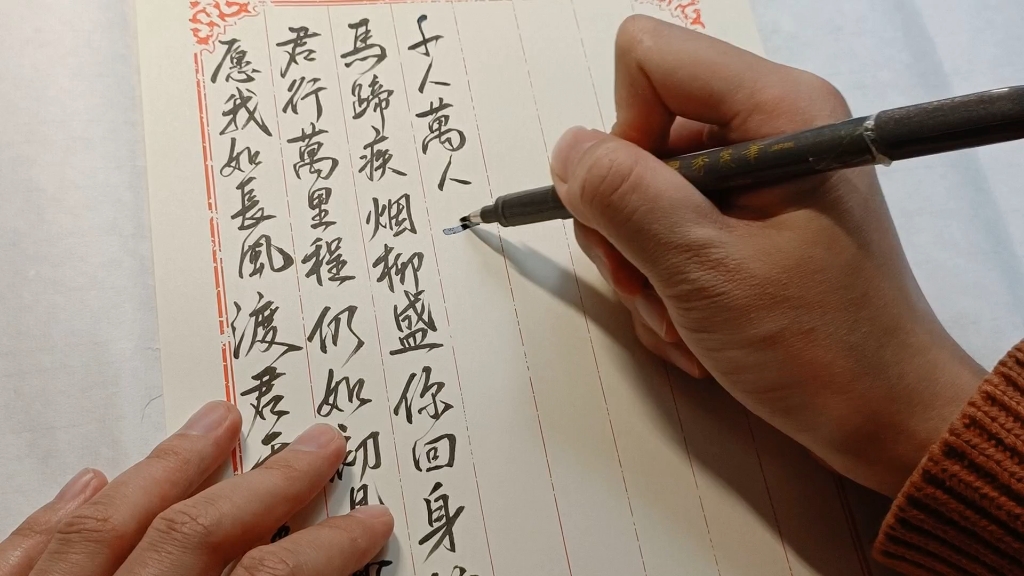 愿我如長風渡君
君行萬里程仍如初見
馬蹄疾烟柳盛你回身
千人萬人